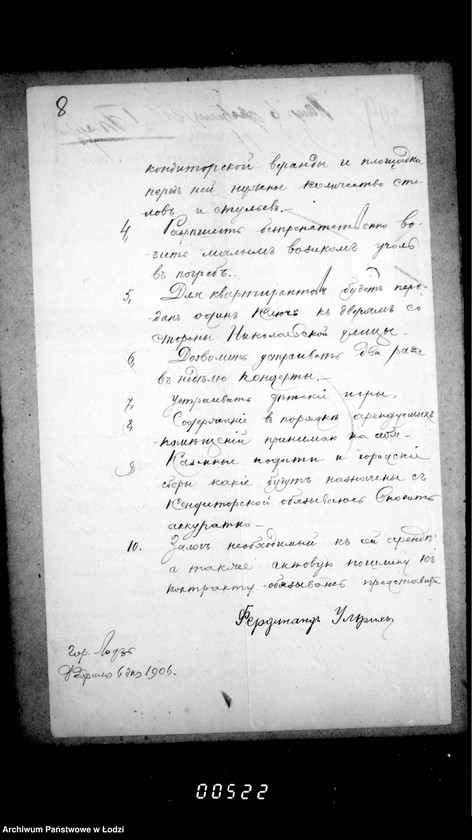 8
кондиторской веранды и площадки
передъ ней нужное количество сто-
ловъ и стульевъ.—
4, Разрѣшить безпрепятственно во-
зить малымъ возикомъ уголь
въ погребъ.
5, Для квартирантовъ будетъ пере-
данъ одинъ ключъ къ дверямъ со
стороны Николаевской улицы.—
6, Дозволить устраивать два раза
въ недѣлю концерты.—
7, Устраивать дѣтскіе игры,
8, Содержаніе въ порядкѣ арендуемыхъ
помѣщеній принимаю на себя—
9, Казенные подати и городскіе
сборы какіе будутъ назначены съ
Кондиторской обязываюсь вносить
аккуратно—
10. Залогъ необходимый къ сей арендѣ
а также актовую пошлину къ
контракту обязываюсь представить
Фердинандъ Ульрихъ
гор. Лодзь
Февраля 6 дня 1906.
00522
Archiwum Państwowe w Łodzi